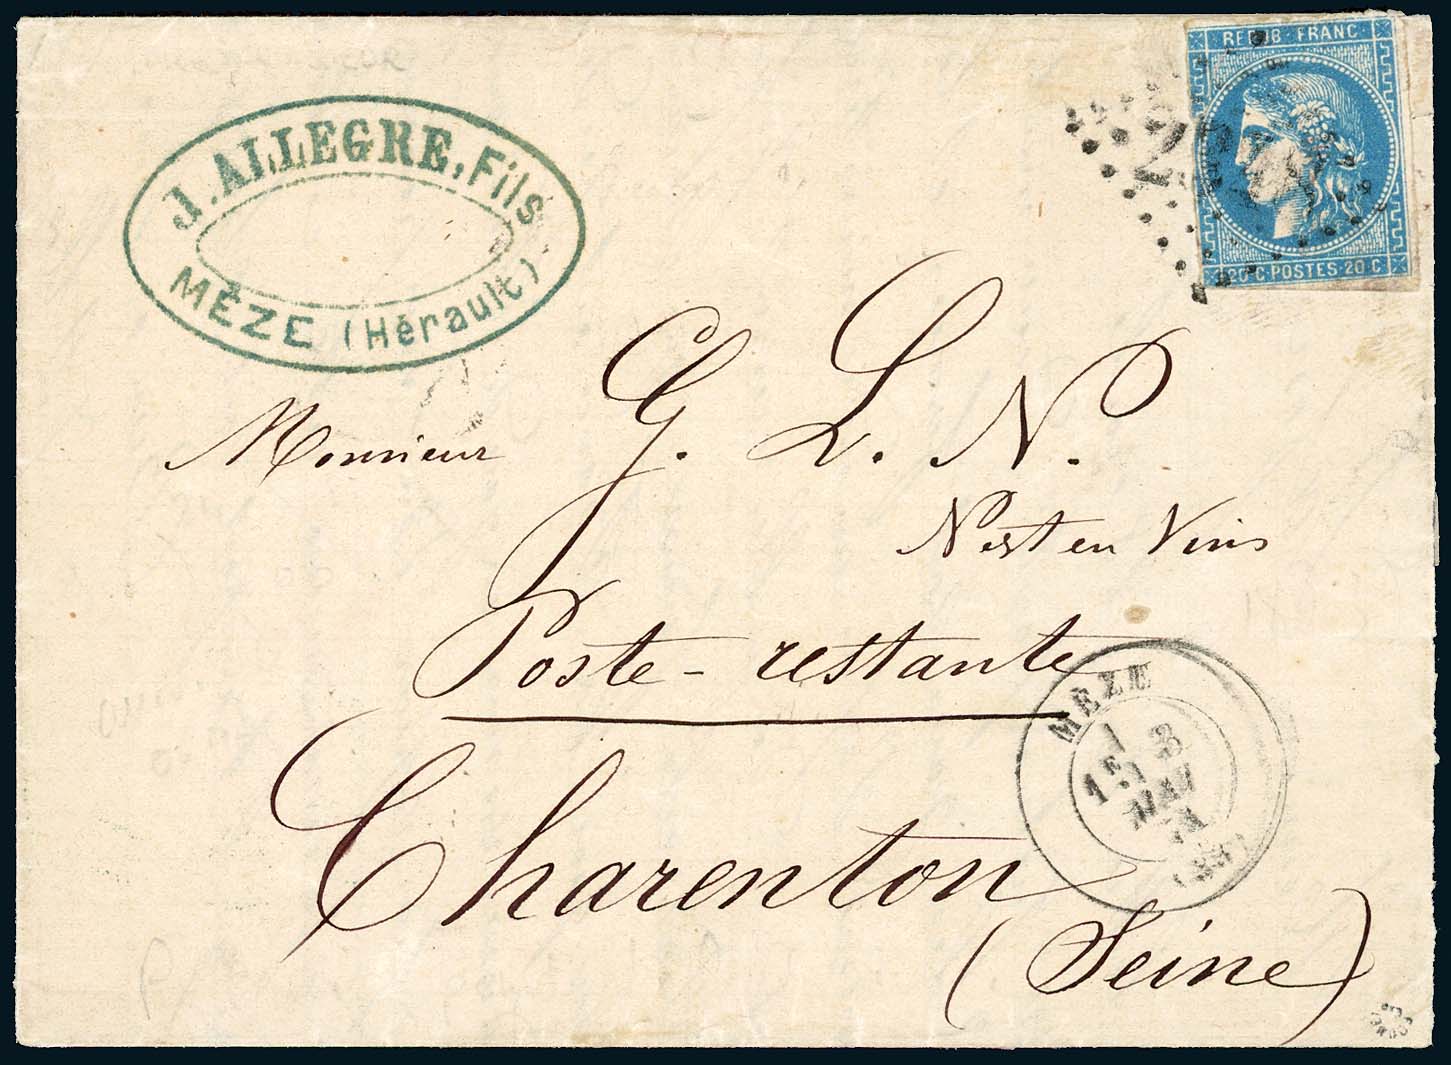 J. ALLEGRE, Fils
MÈZE (Hérault)
REPUB · FRANC
20·C·POSTES·20·C
Monsieur G. L. N.
Nést en Vins
Poste-restante
Charenton
(Seine)
MÈZE
1E
MAI